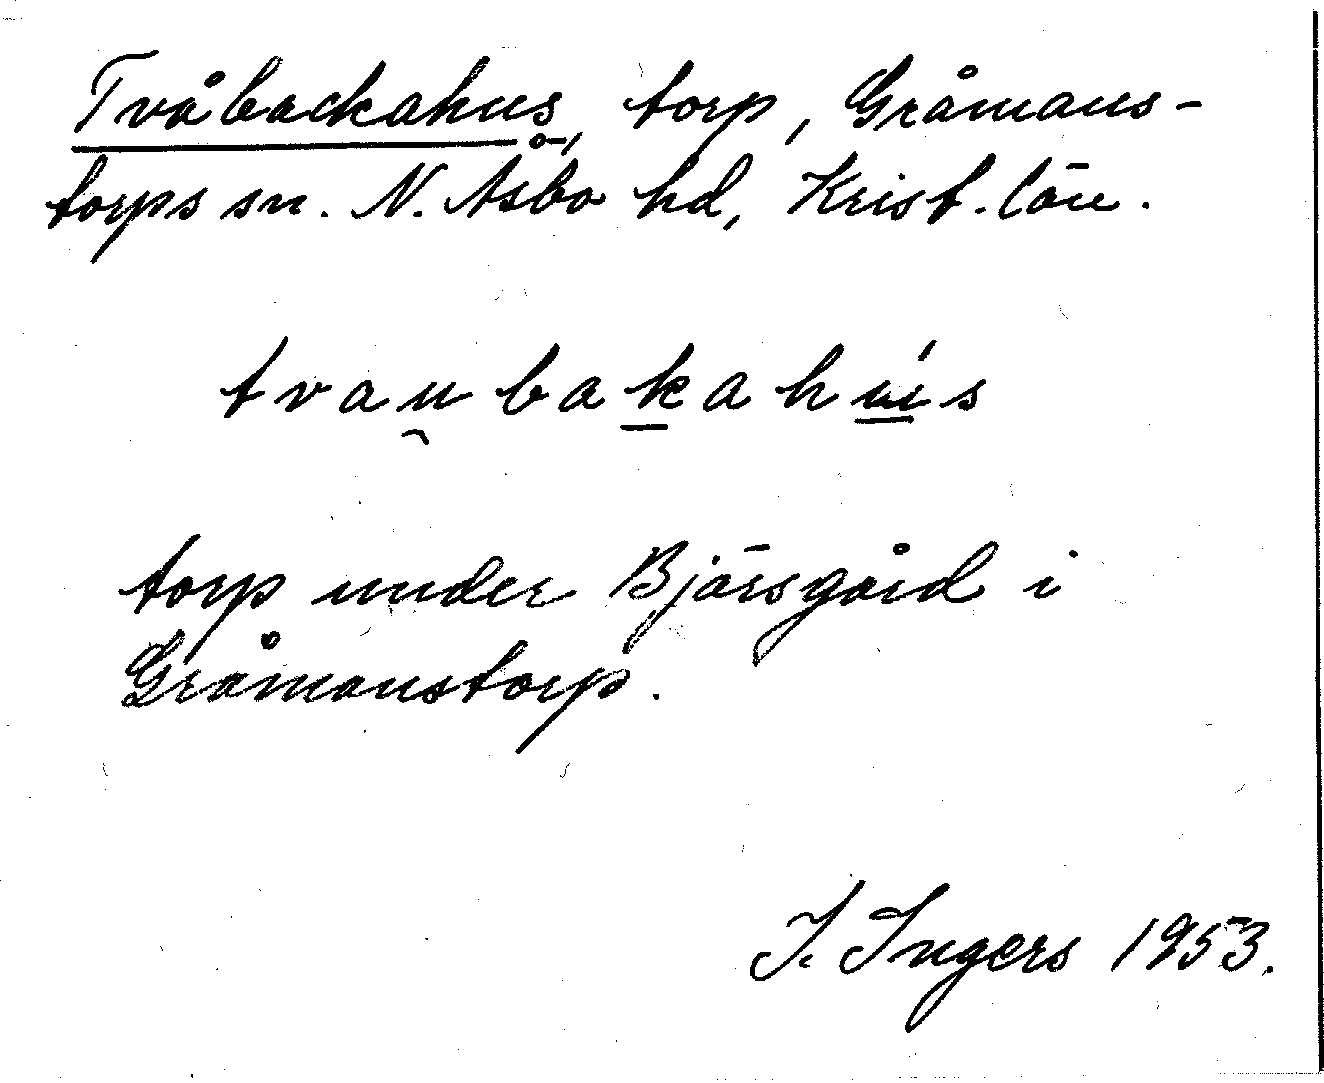 Tvåbackahus, torp, Gråmans-
torps sn. N. Åsbo hd, Krist. län.
tvau̯bak̲ahú̲s
torp under Bjärsgård i
Gråmanstorp.
I. Ingers 1953.